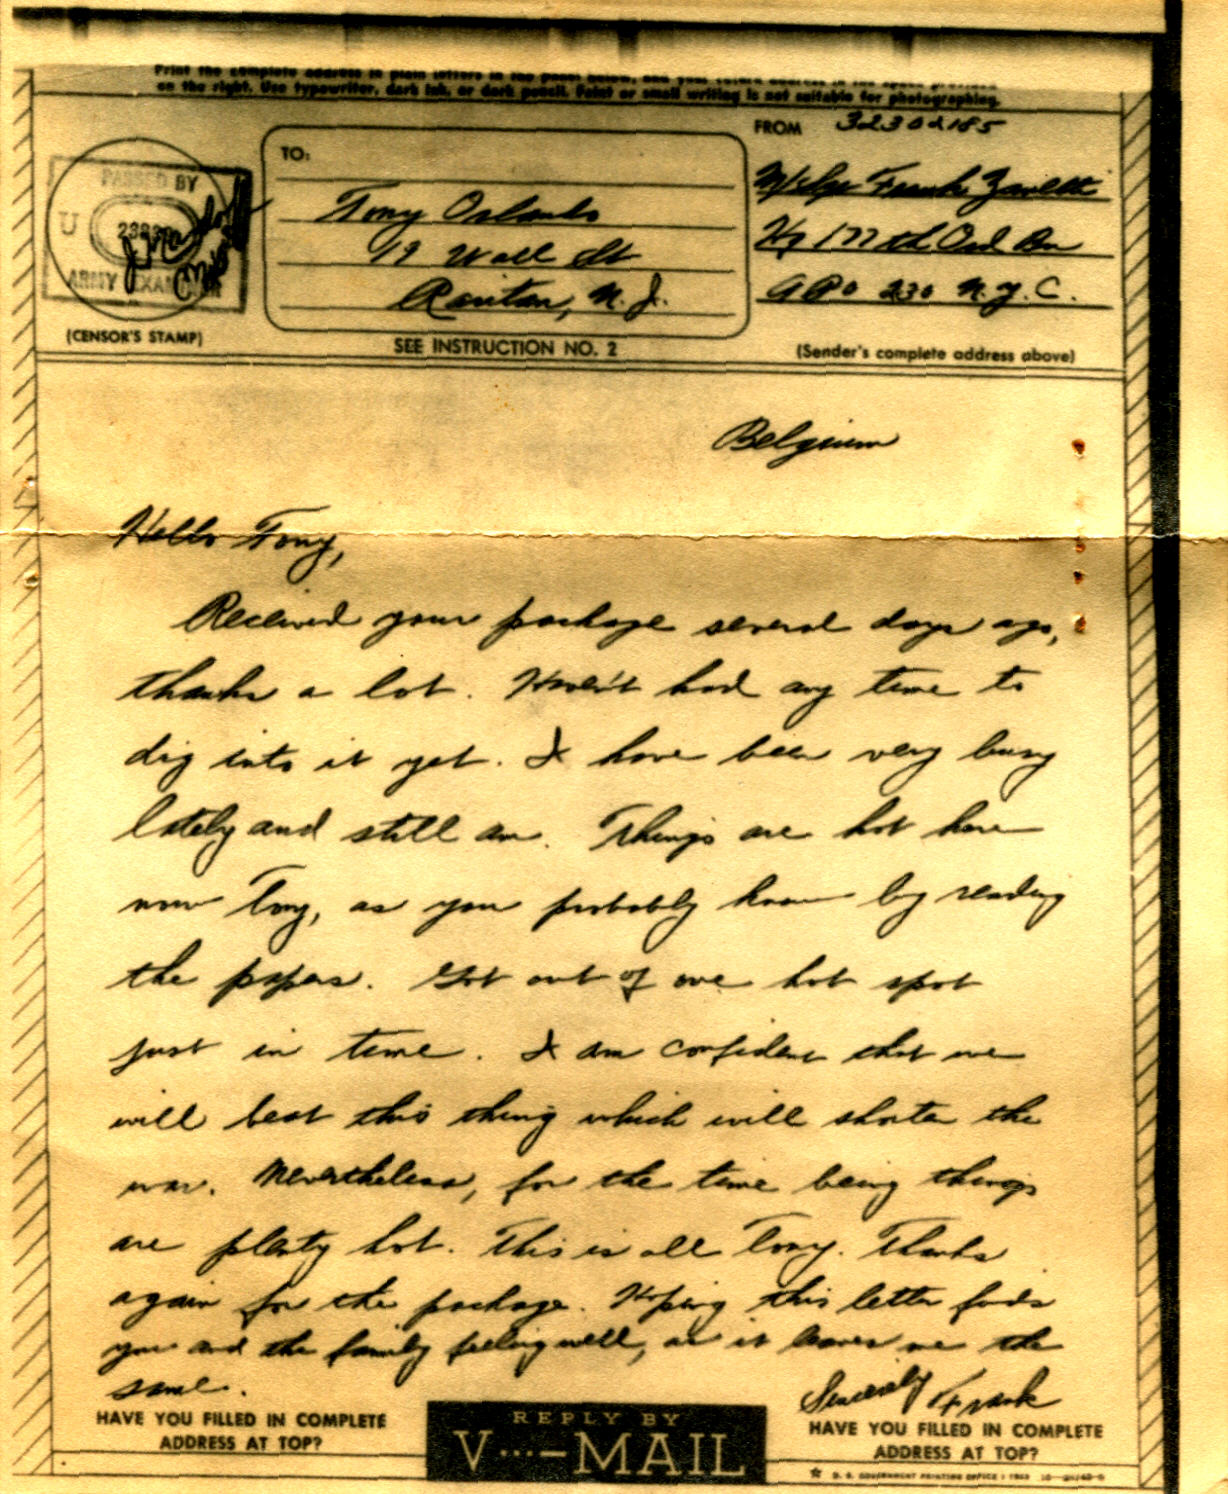 Print the complete address in plain letters in the panel below, and your return address in the space provided
on the right. Use typewriter, dark ink, or dark pencil. Faint or small writing is not suitable for photographing.
FROM 32302185
TO:
PASSED BY
U
ARMY EXAMINER
(CENSOR'S STAMP)
Tony Orlando
19 Wall St
Raritan, N. J.
SEE INSTRUCTION NO. 2
M/Sgt Frank
Hq 177th Ord Bn
APO 230 N.Y.C.
(Sender's complete address above)
Belgium
Hello Tony,
Received your package several days ago,
thanks a lot. Haven't had any time to
dig into it yet. I have been very busy
lately and still am. Things are hot here
now Tony, as you probably know by reading
the papers. Got out of one hot spot
just in time. I am confident that we
will beat this thing which will shorten the
war. Nevertheless, for the time being things
are plenty hot. This is all Tony. Thanks
again for the package. Hoping this letter finds
you and the family feeling well, as it leaves me the
same.
Sincerely Frank
HAVE YOU FILLED IN COMPLETE
ADDRESS AT TOP?
REPLY BY
V···—MAIL
HAVE YOU FILLED IN COMPLETE
ADDRESS AT TOP?
☆ U. S. GOVERNMENT PRINTING OFFICE : 1943